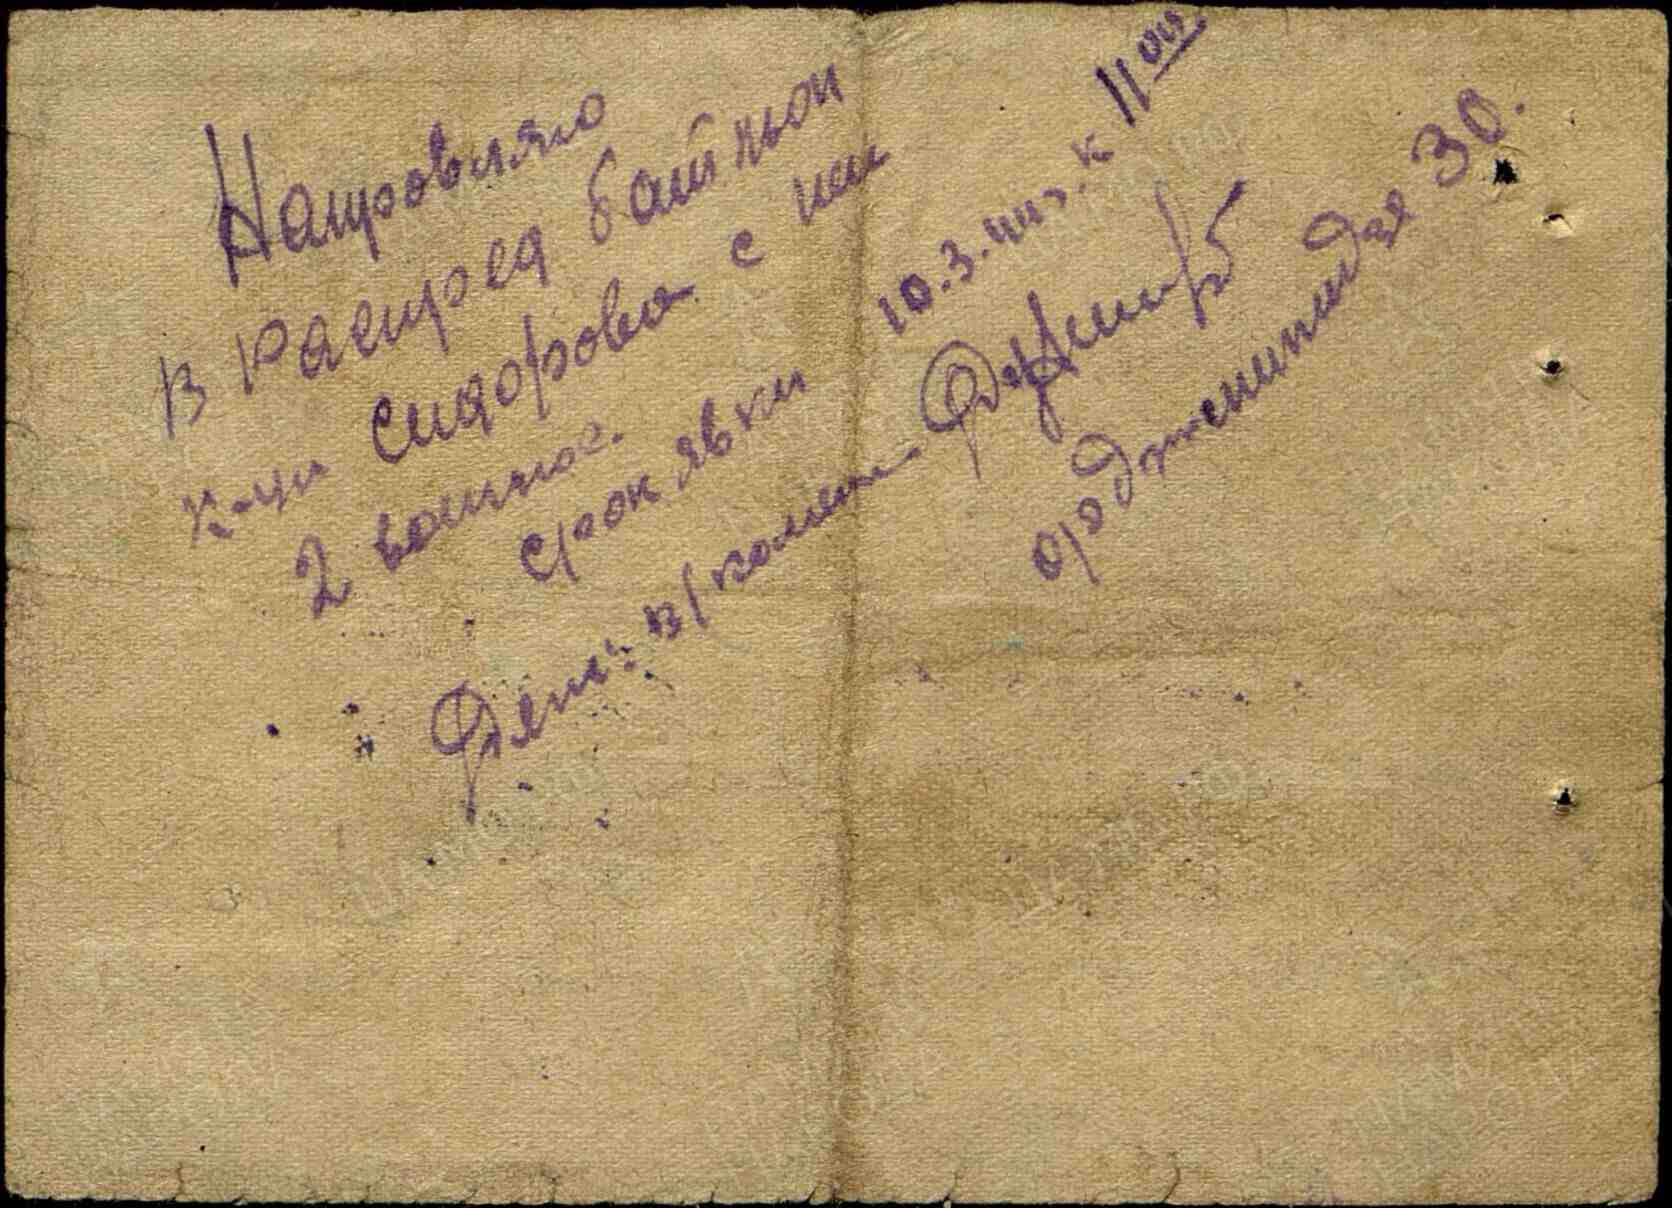 Направляю
в распред батльон
к-ци Сидорова с ним
2 воинис.
срок явки 10.3.44г. к 11 00
Деж. в/комен.
Орджникидзе 30.